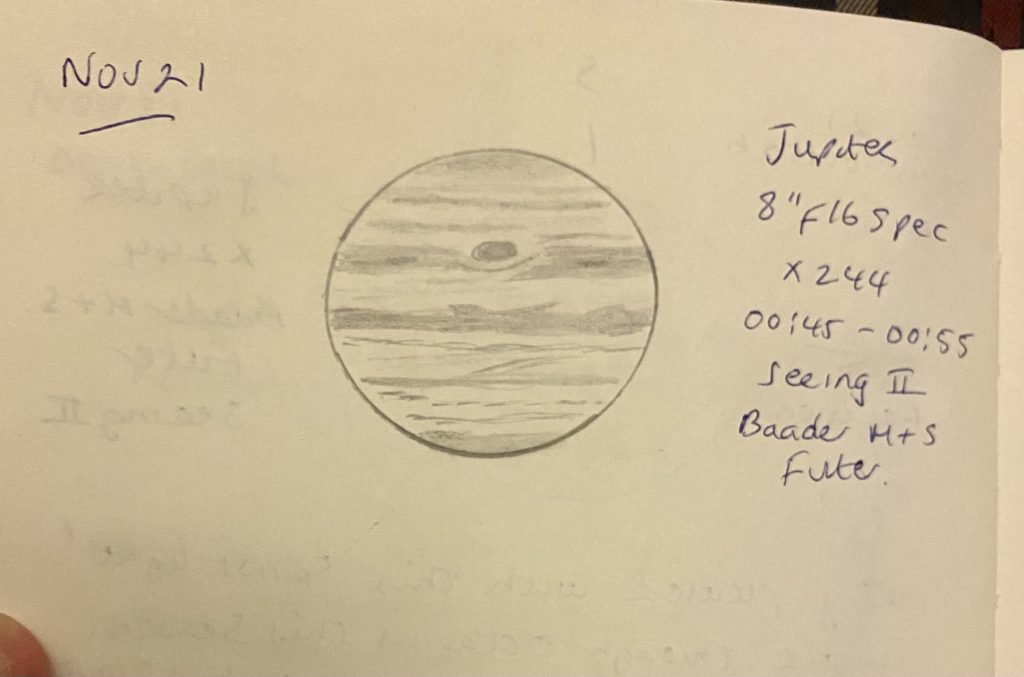 Nov 21
Jupiter
8" F/6 Spec
x 244
00:45 - 00:55
Seeing II
Baader M+S
Filter.